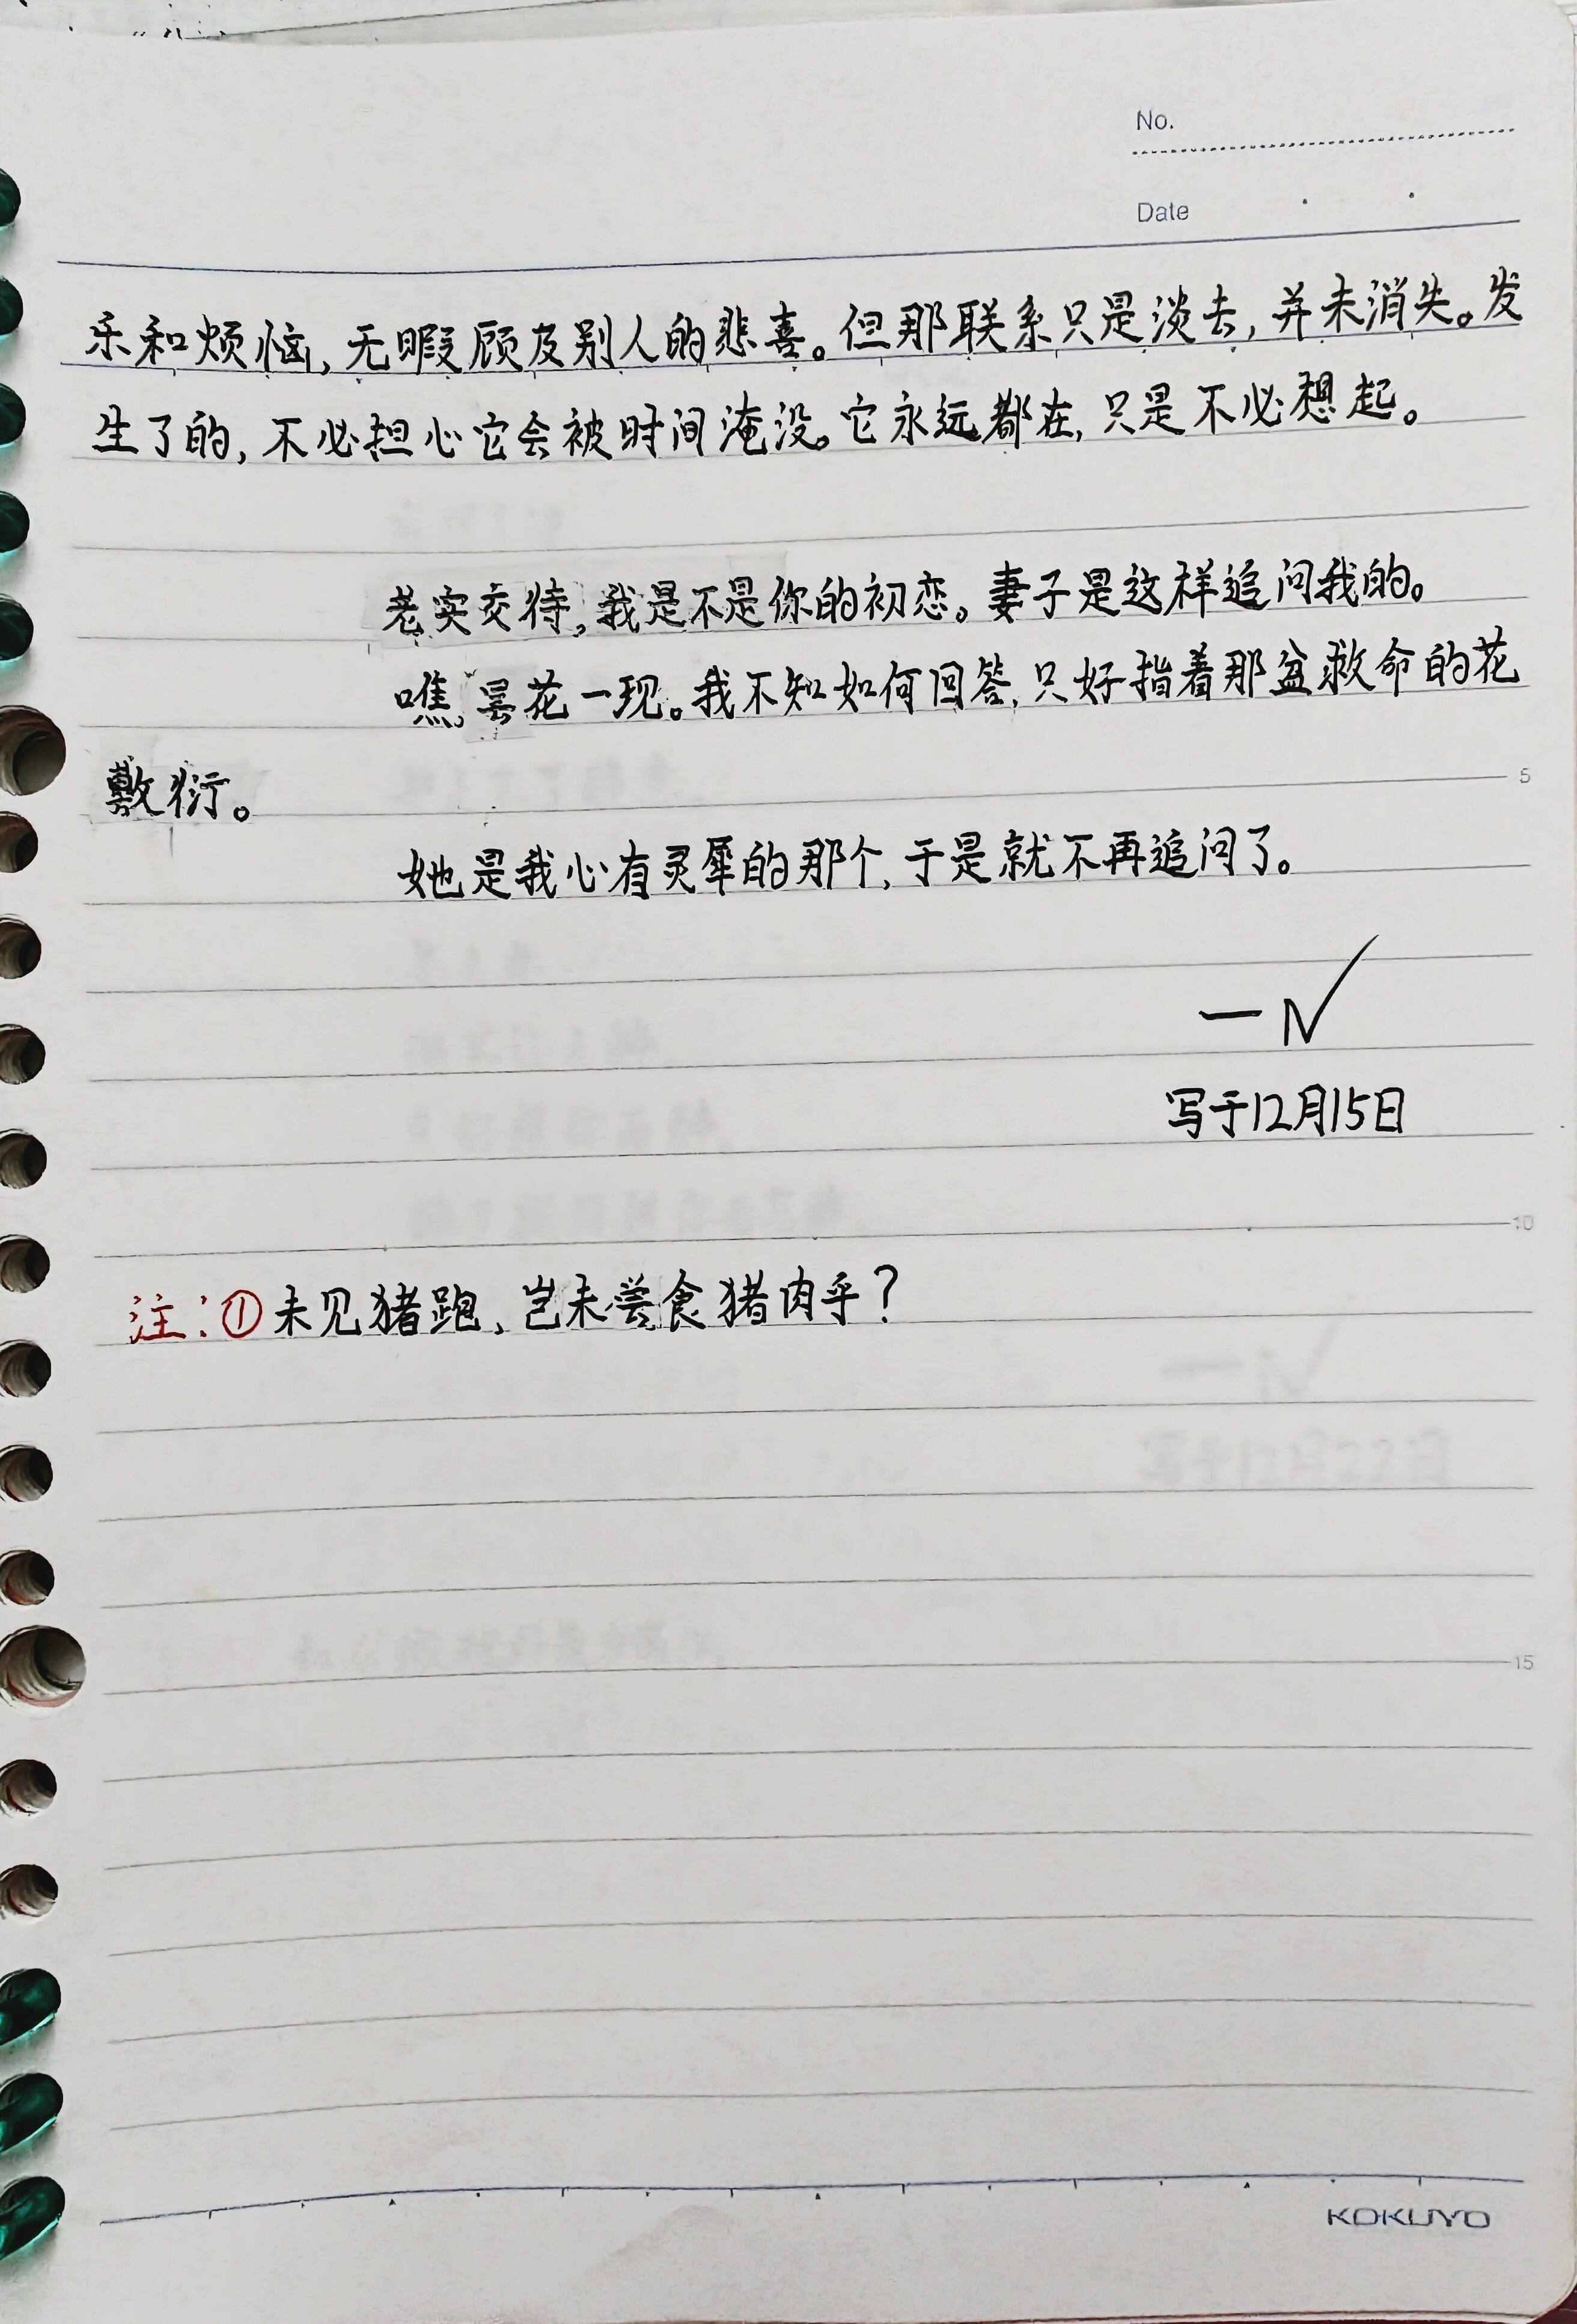 No.
Date
乐和烦恼,无暇顾及别人的悲喜。但那联系只是淡去,并未消失。发
生了的,不必担心它会被时间淹没。它永远都在,只是不必想起。
老实交待,我是不是你的初恋。妻子是这样追问我的。
瞧,昙花一现。我不知如何回答,只好指着那盆救命的花
5
敷衍。
她是我心有灵犀的那个,于是就不再追问了。
写于12月15日
10
注:①未见猪跑、岂未尝食猪肉乎?
15
KOKUYO